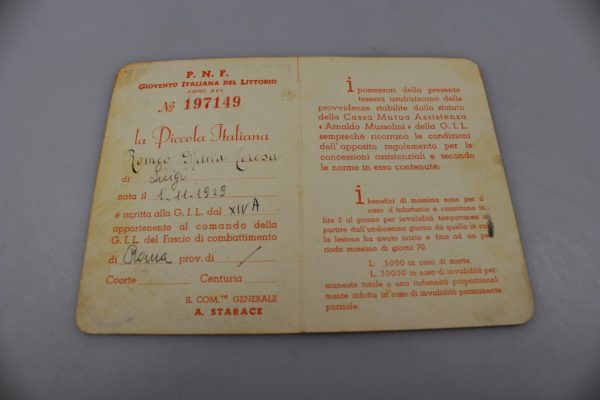 P. N. F.
GIOVENTÙ ITALIANA DEL LITTORIO
ANNO XVI
№ 197149
la Piccola Italiana
Romeo Maria Teresa
di Luigi
nata il 1-11-1929
è iscritta alla G.I.L. dal XIV A
appartenente al comando della
G.I.L. del Fascio di combattimento
di Roma prov. di /
Coorte Centuria
IL COM.TE GENERALE
A. STARACE
i possessori della presente
tessera usufruiscono delle
provvidenze stabilite dallo statuto
della Cassa Mutua Assistenza
« Arnaldo Mussolini » della G.I.L.
sempreché ricorrano le condizioni
dell'apposito regolamento per le
concessioni assistenziali e secondo
le norme in esso contenute.
i benefici di massima sono per il
caso d'infortunio e consistono in
lire 2 al giorno per invalidità temporanea a
partire dall'undicesimo giorno da quello in cui
la lesione ha avuto inizio e fino ad un pe-
riodo massimo di giorni 70.
L. 5000 in caso di morte.
L. 30000 in caso di invalidità per-
manente totale o una indennità proporzional-
mente ridotta in caso di invalidità permanente
parziale.